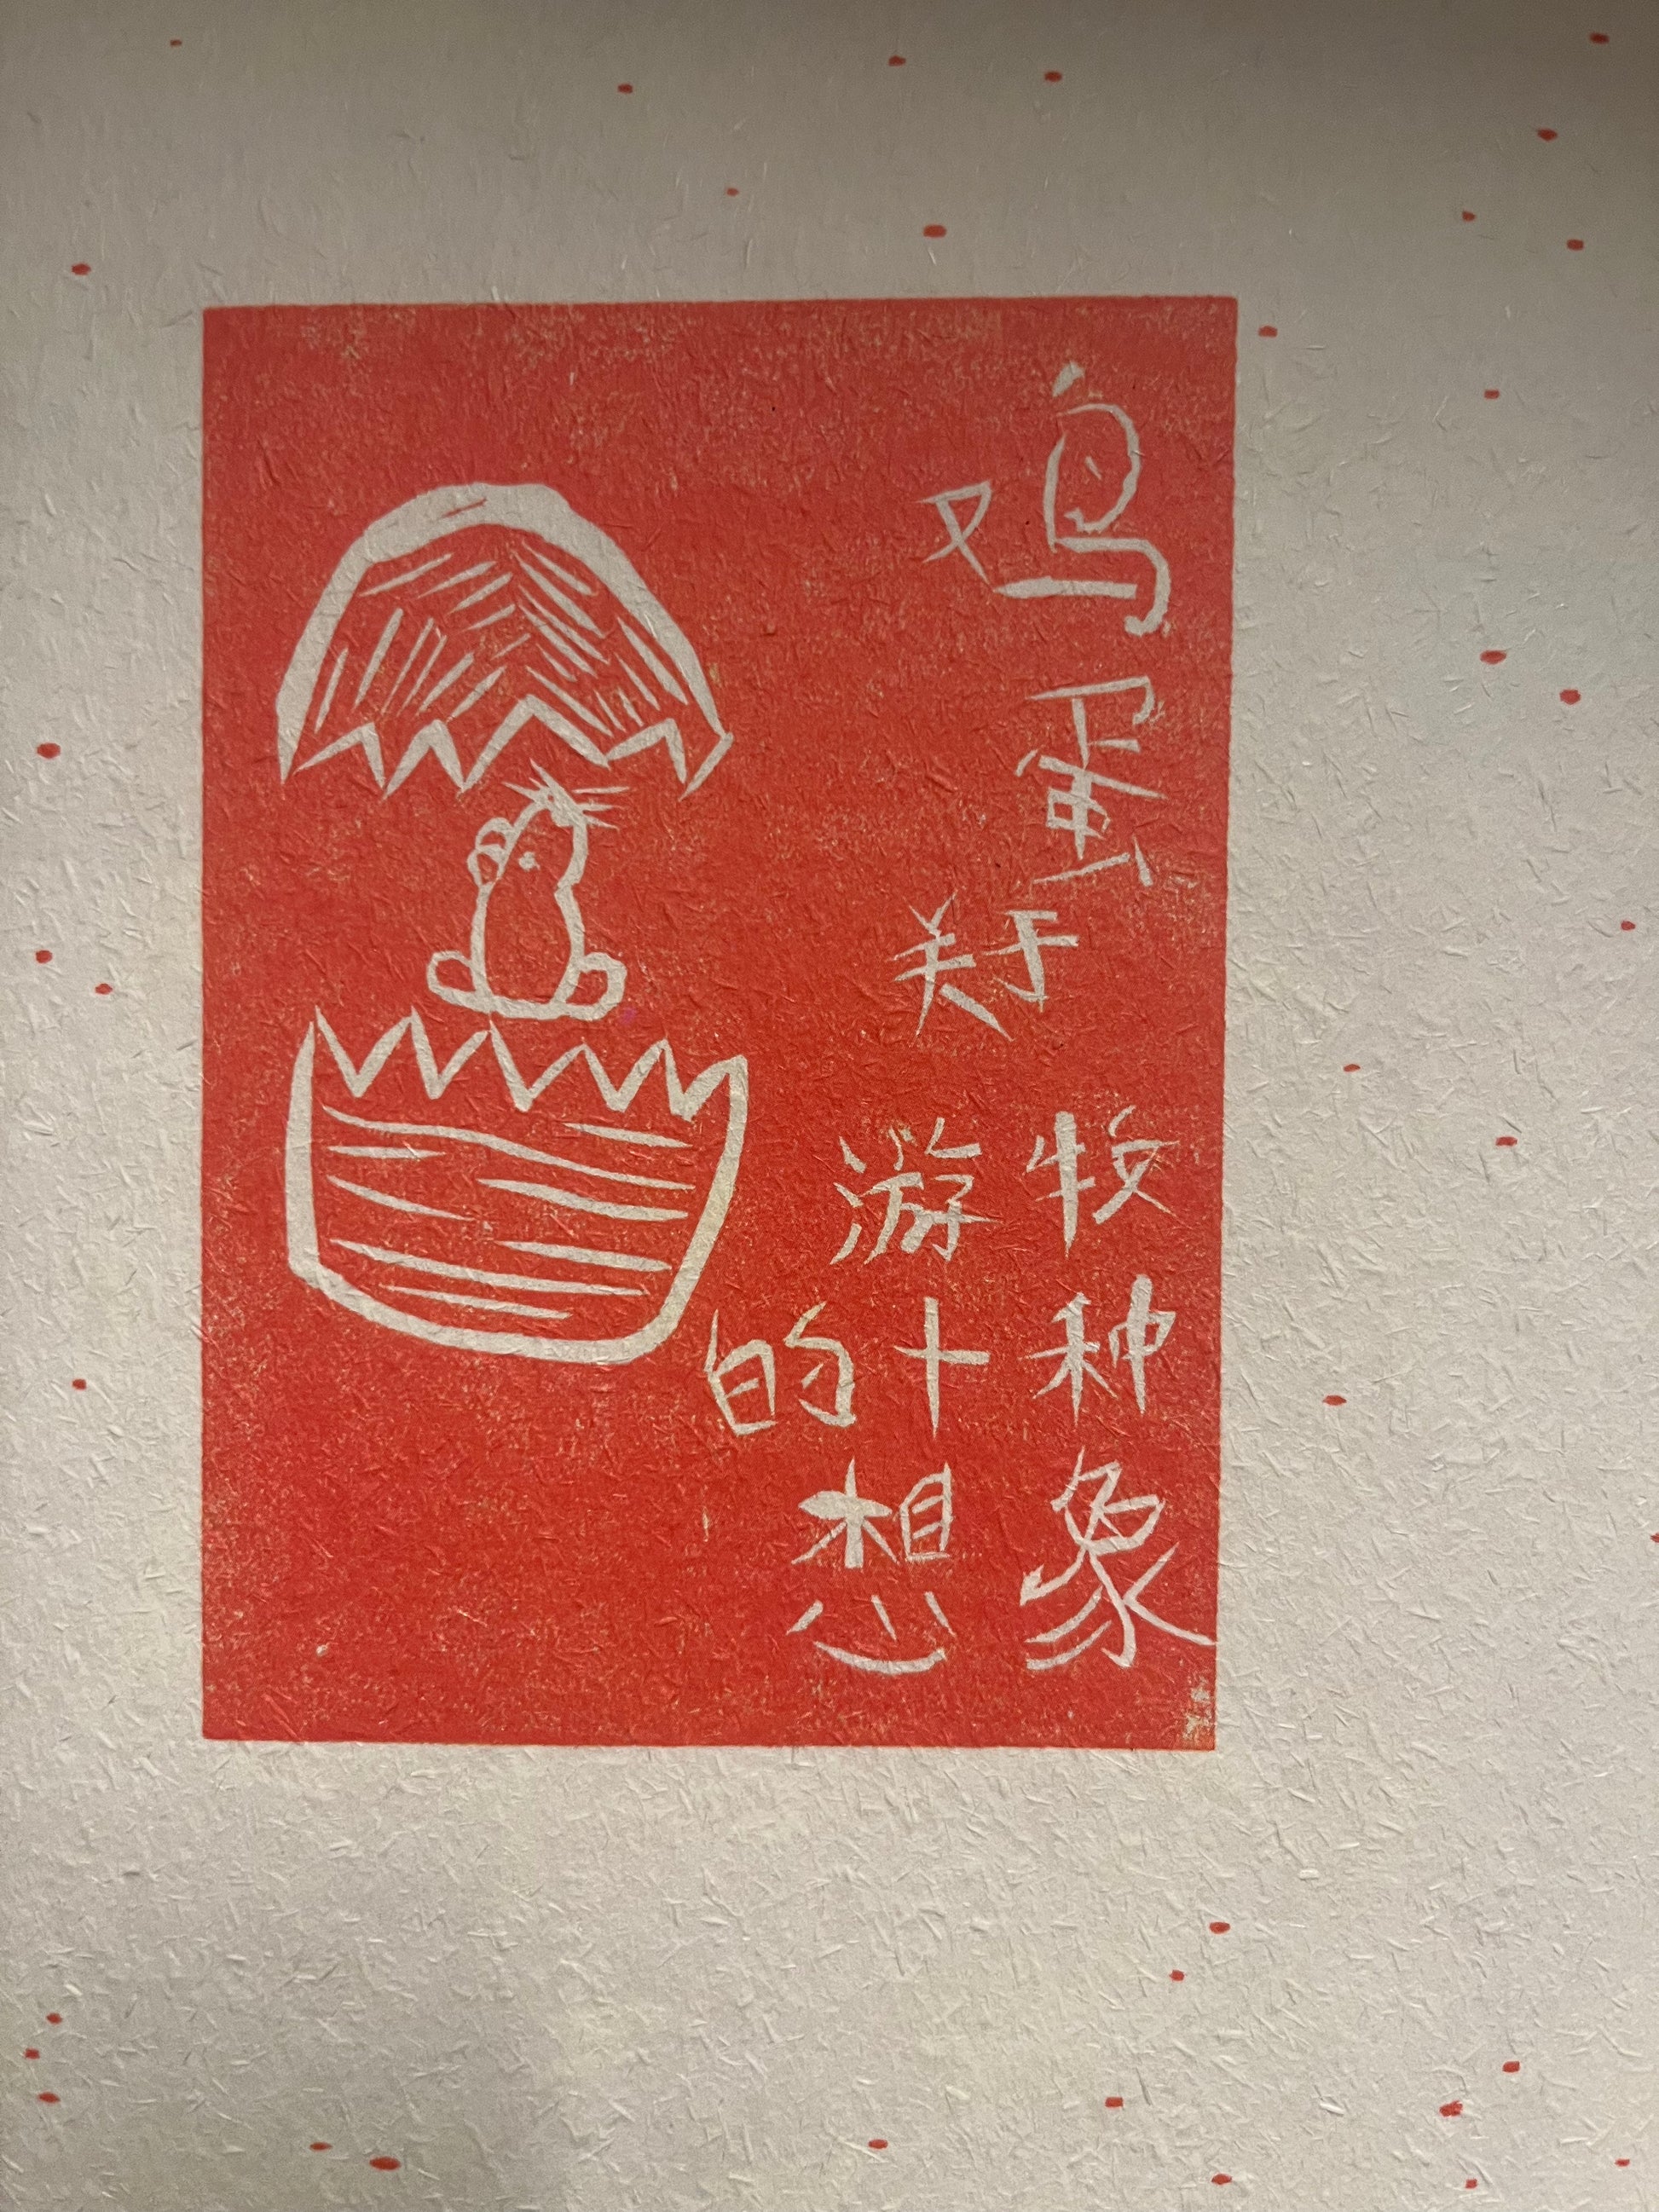 鸡蛋
关于
游牧
的十种
想象